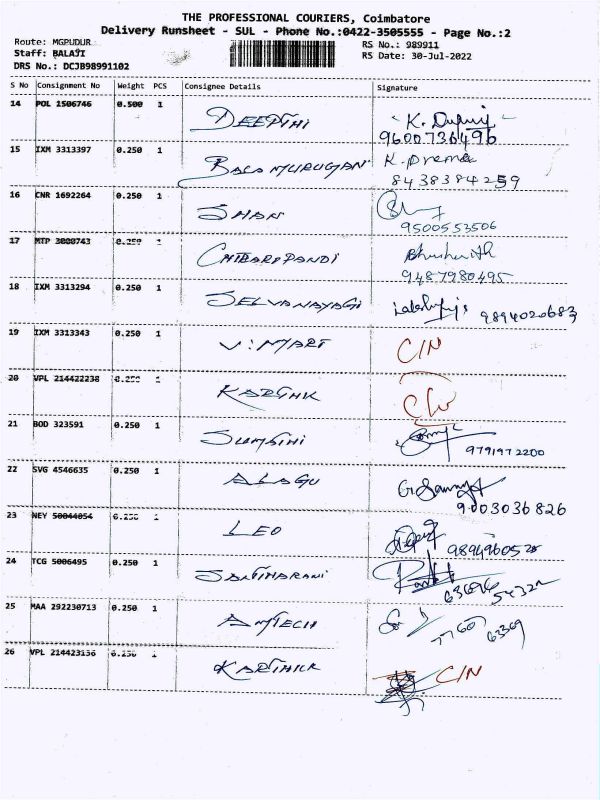 THE PROFESSIONAL COURIERS, Coimbatore
Delivery Runsheet - SUL - Phone No.:0422-3505555 - Page No.:2
Route: MGPUDUR
RS No.: 989911
Staff: BALAJI
RS Date: 30-Jul-2022
DRS No.: DCJB98991102
S No Consignment No Weight PCS Consignee Details Signature
14 POL 1506746 0.500 1 DEEPTHI
9600736496
15 IXM 3313397 0.250 1 BALAMURUGAN K. Prema
8438384259
16 CNR 1692264 0.250 1 SHAN
9500553506
17 MTP 3000743 0.250 1 CHITRARPANDI
9487980495
18 IXM 3313294 0.250 1 SELVANAYAGI 9894020683
19 IXM 3313343 0.250 1 V.MART C/N
20 VPL 214422238 0.250 1 KARTHIK C/N
21 BOD 323591 0.250 1 SUMATHI
9791972200
22 SVG 4546635 0.250 1 ALAGU
9003036826
23 NEY 50044054 0.250 1 LEO
9894960528
24 TCG 5006495 0.250 1 SANTHARANI
63696 54322
25 MAA 292230713 0.250 1 AMTECH
77607 63369
26 VPL 214423136 0.250 1 KARTHICK C/N